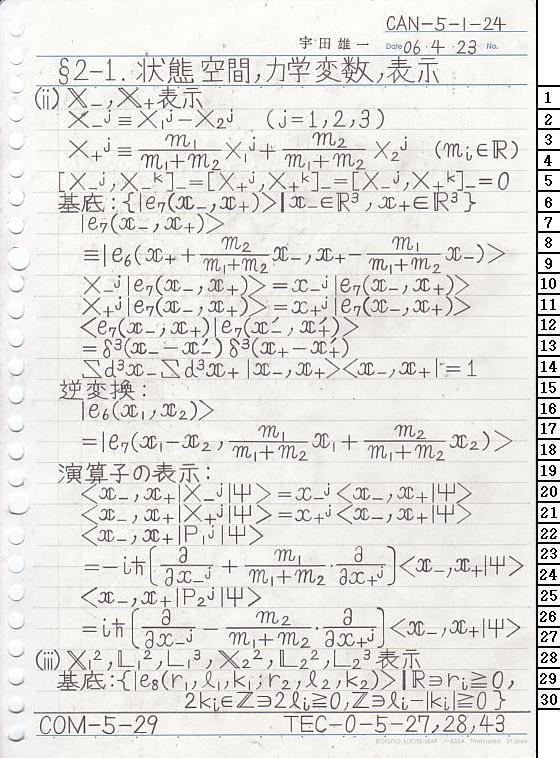 CAN-5-1-24
宇田雄一 Date 06・4・23 No.
§2-1. 状態空間,力学変数,表示
(ii) 𝕏₋, 𝕏₊ 表示
X₋ʲ ≡ X₁ʲ − X₂ʲ (j=1,2,3)
X₊ʲ ≡ m₁/(m₁+m₂) X₁ʲ + m₂/(m₁+m₂) X₂ʲ (mᵢ∈ℝ)
[X₋ʲ, X₋ᵏ]₋ = [X₊ʲ, X₊ᵏ]₋ = [X₋ʲ, X₊ᵏ]₋ = 0
基底: {|e₇(x₋, x₊)> | x₋∈ℝ³, x₊∈ℝ³}
|e₇(x₋, x₊)>
≡ |e₆(x₊ + m₂/(m₁+m₂) x₋, x₊ − m₁/(m₁+m₂) x₋)>
X₋ʲ |e₇(x₋, x₊)> = x₋ʲ |e₇(x₋, x₊)>
X₊ʲ |e₇(x₋, x₊)> = x₊ʲ |e₇(x₋, x₊)>
<e₇(x₋, x₊)|e₇(x₋′, x₊′)>
= δ³(x₋ − x₋′) δ³(x₊ − x₊′)
∑d³x₋ ∑d³x₊ |x₋, x₊><x₋, x₊| = 1
逆変換:
|e₆(x₁, x₂)>
= |e₇(x₁ − x₂, m₁/(m₁+m₂) x₁ + m₂/(m₁+m₂) x₂)>
演算子の表示:
<x₋, x₊|X₋ʲ|Ψ> = x₋ʲ <x₋, x₊|Ψ>
<x₋, x₊|X₊ʲ|Ψ> = x₊ʲ <x₋, x₊|Ψ>
<x₋, x₊|P₁ʲ|Ψ>
= −iℏ[∂/∂x₋ʲ + m₁/(m₁+m₂)・∂/∂x₊ʲ]<x₋, x₊|Ψ>
<x₋, x₊|P₂ʲ|Ψ>
= iℏ[∂/∂x₋ʲ − m₂/(m₁+m₂)・∂/∂x₊ʲ]<x₋, x₊|Ψ>
(iii) 𝕏₁², 𝕃₁², 𝕃₁³, 𝕏₂², 𝕃₂², 𝕃₂³ 表示
基底: {|e₈(r₁, l₁, k₁; r₂, l₂, k₂)> | ℝ∋rᵢ≧0,
2kᵢ∈ℤ∋2lᵢ≧0, ℤ∋lᵢ−|kᵢ|≧0}
COM-5-29 TEC-0-5-27,28,43
1
2
3
4
5
6
7
8
9
10
11
12
13
14
15
16
17
18
19
20
21
22
23
24
25
26
27
28
29
30